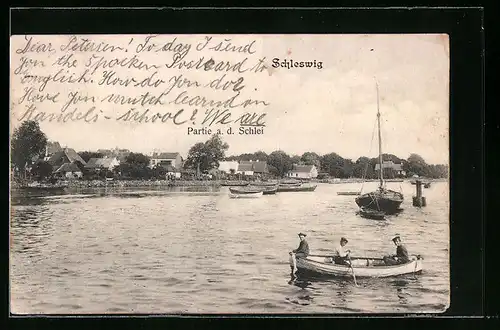 Dear Petersen! To day I send
you the spocken Postcard to
english. How do you do?
Have you vutch learnd on
Handels-school? We are
Schleswig
Partie a. d. Schlei